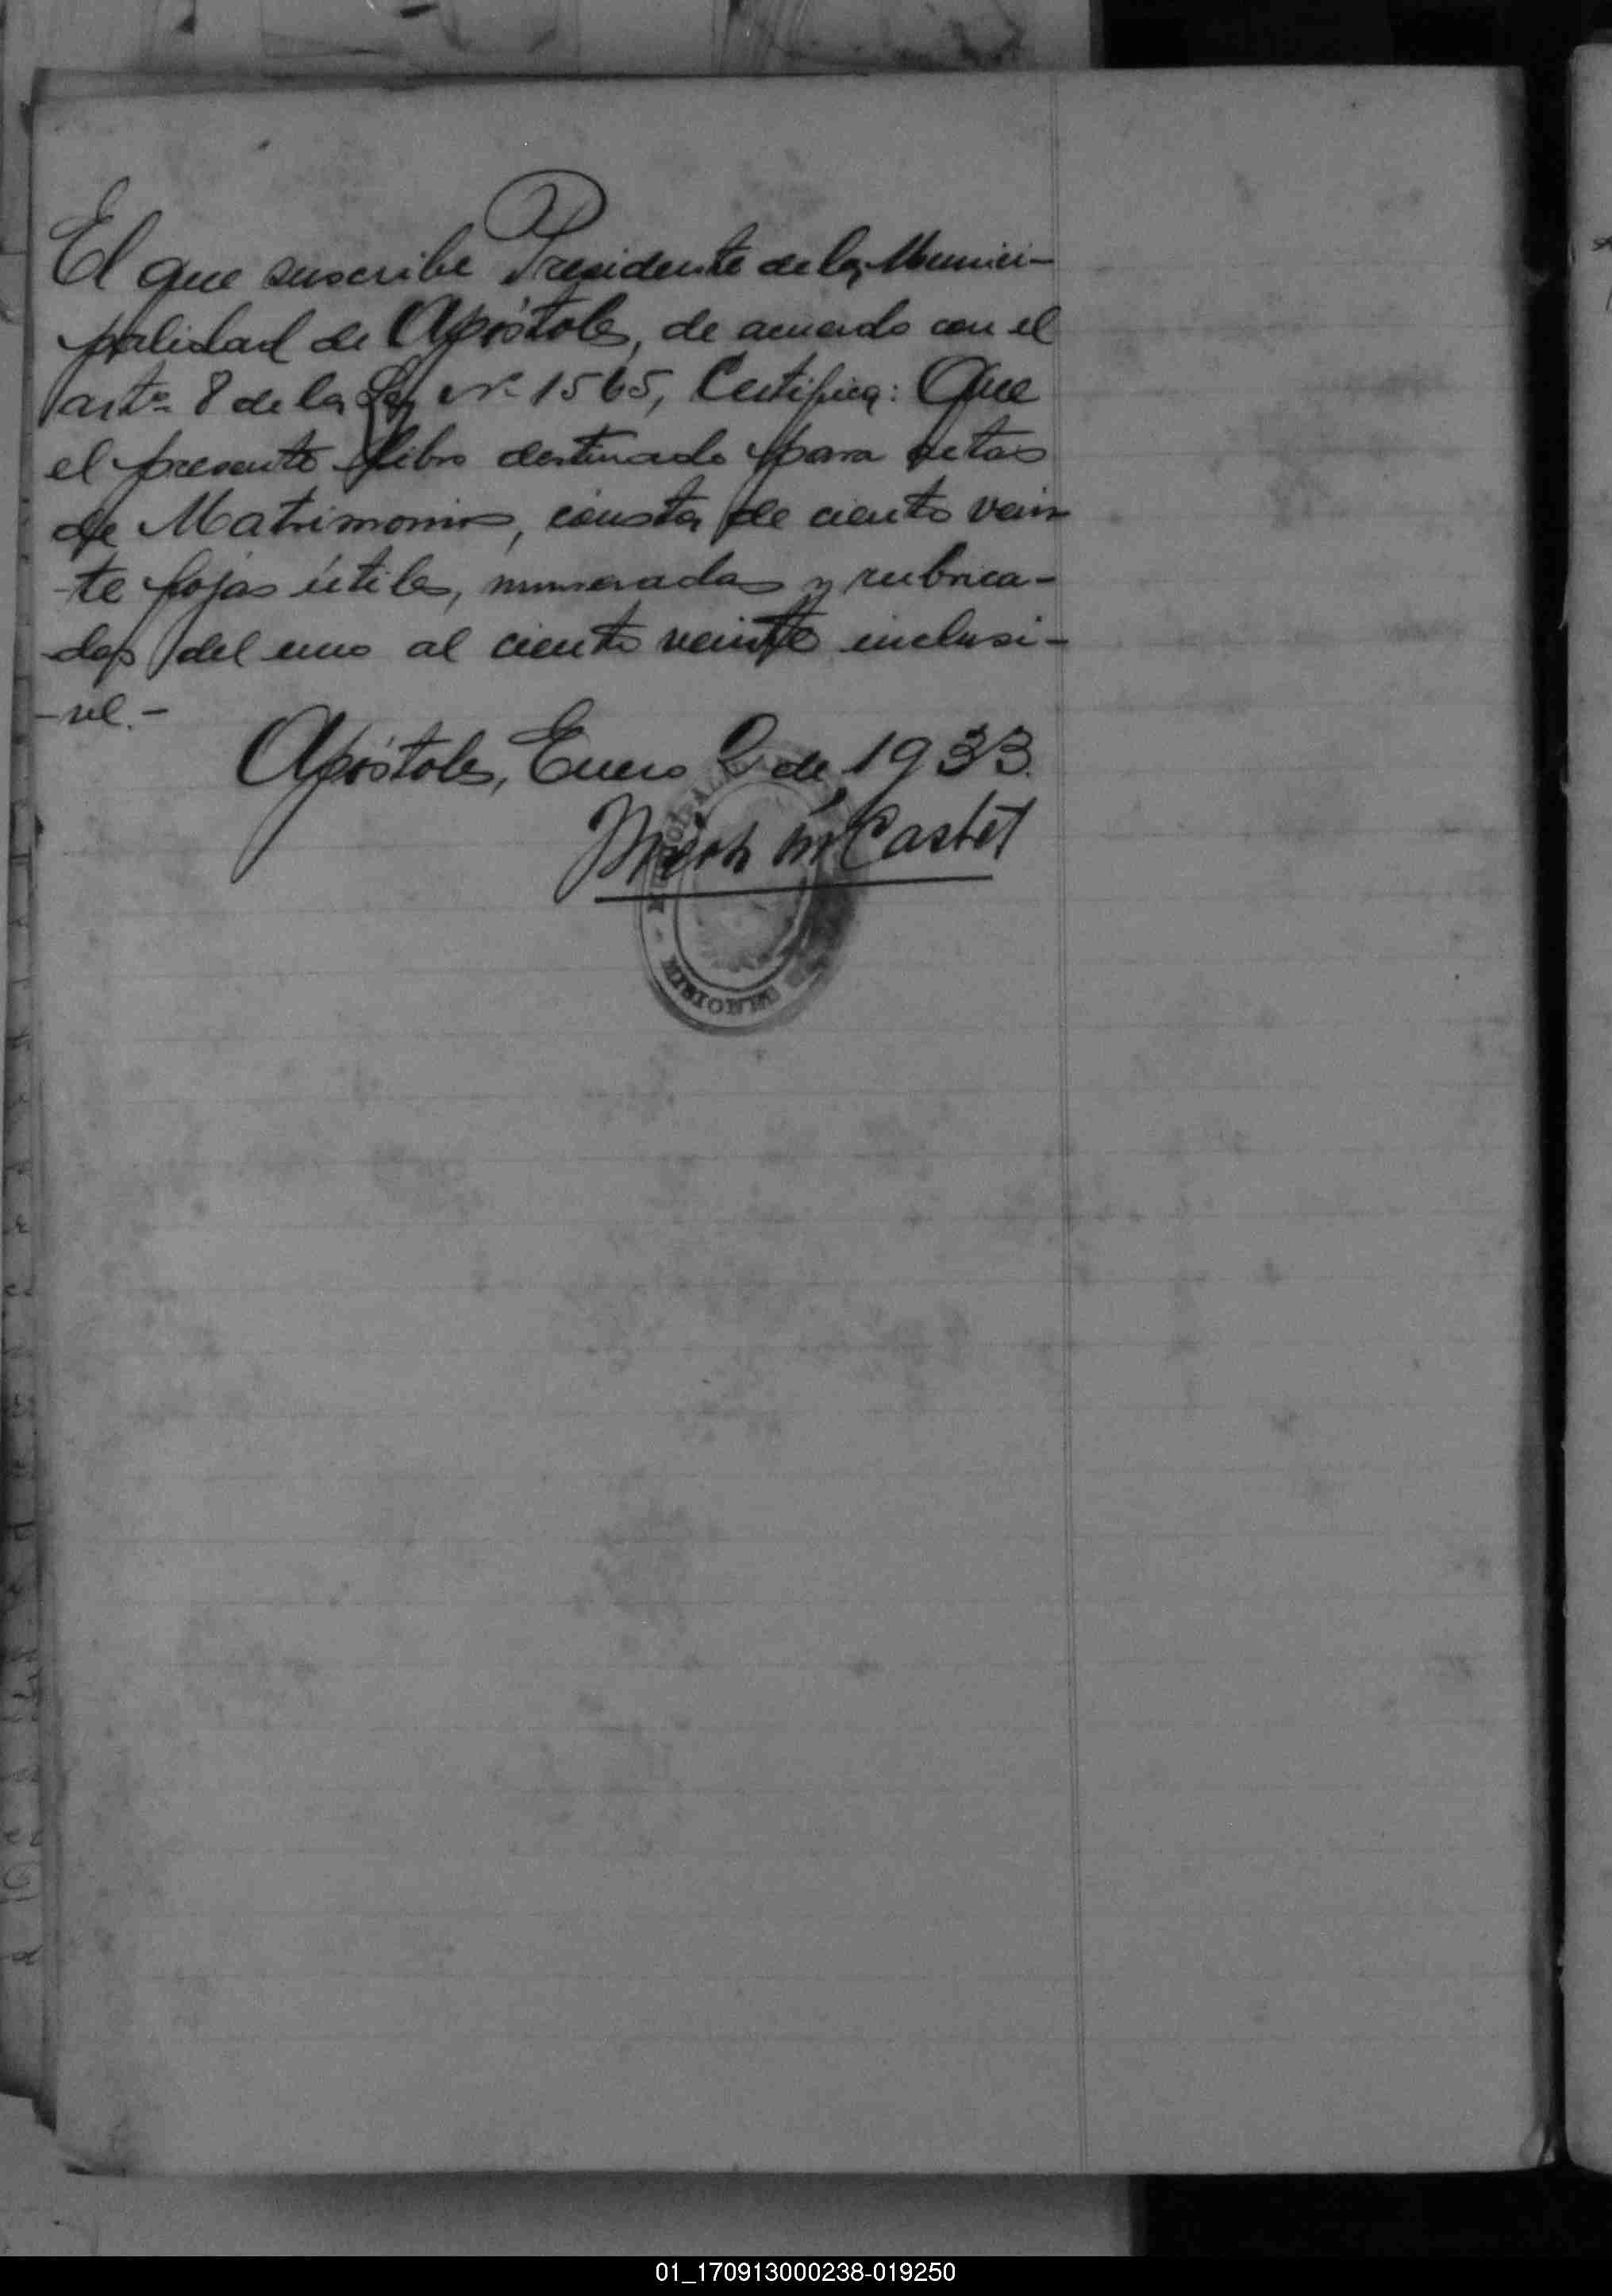 El que suscribe Presidente de la Munici-
palidad de Apóstoles, de acuerdo con el
artº 8 de la Ley Nº 1565, Certifica: Que
el presente libro destinado para actas
de Matrimonios, consta de ciento vein
-te fojas útiles, numeradas y rubrica-
-das del uno al ciento veinte inclusi-
-ve.-
Apóstoles, Enero 2 de 1933.
Castet
MISIONES
01_170913000238-019250